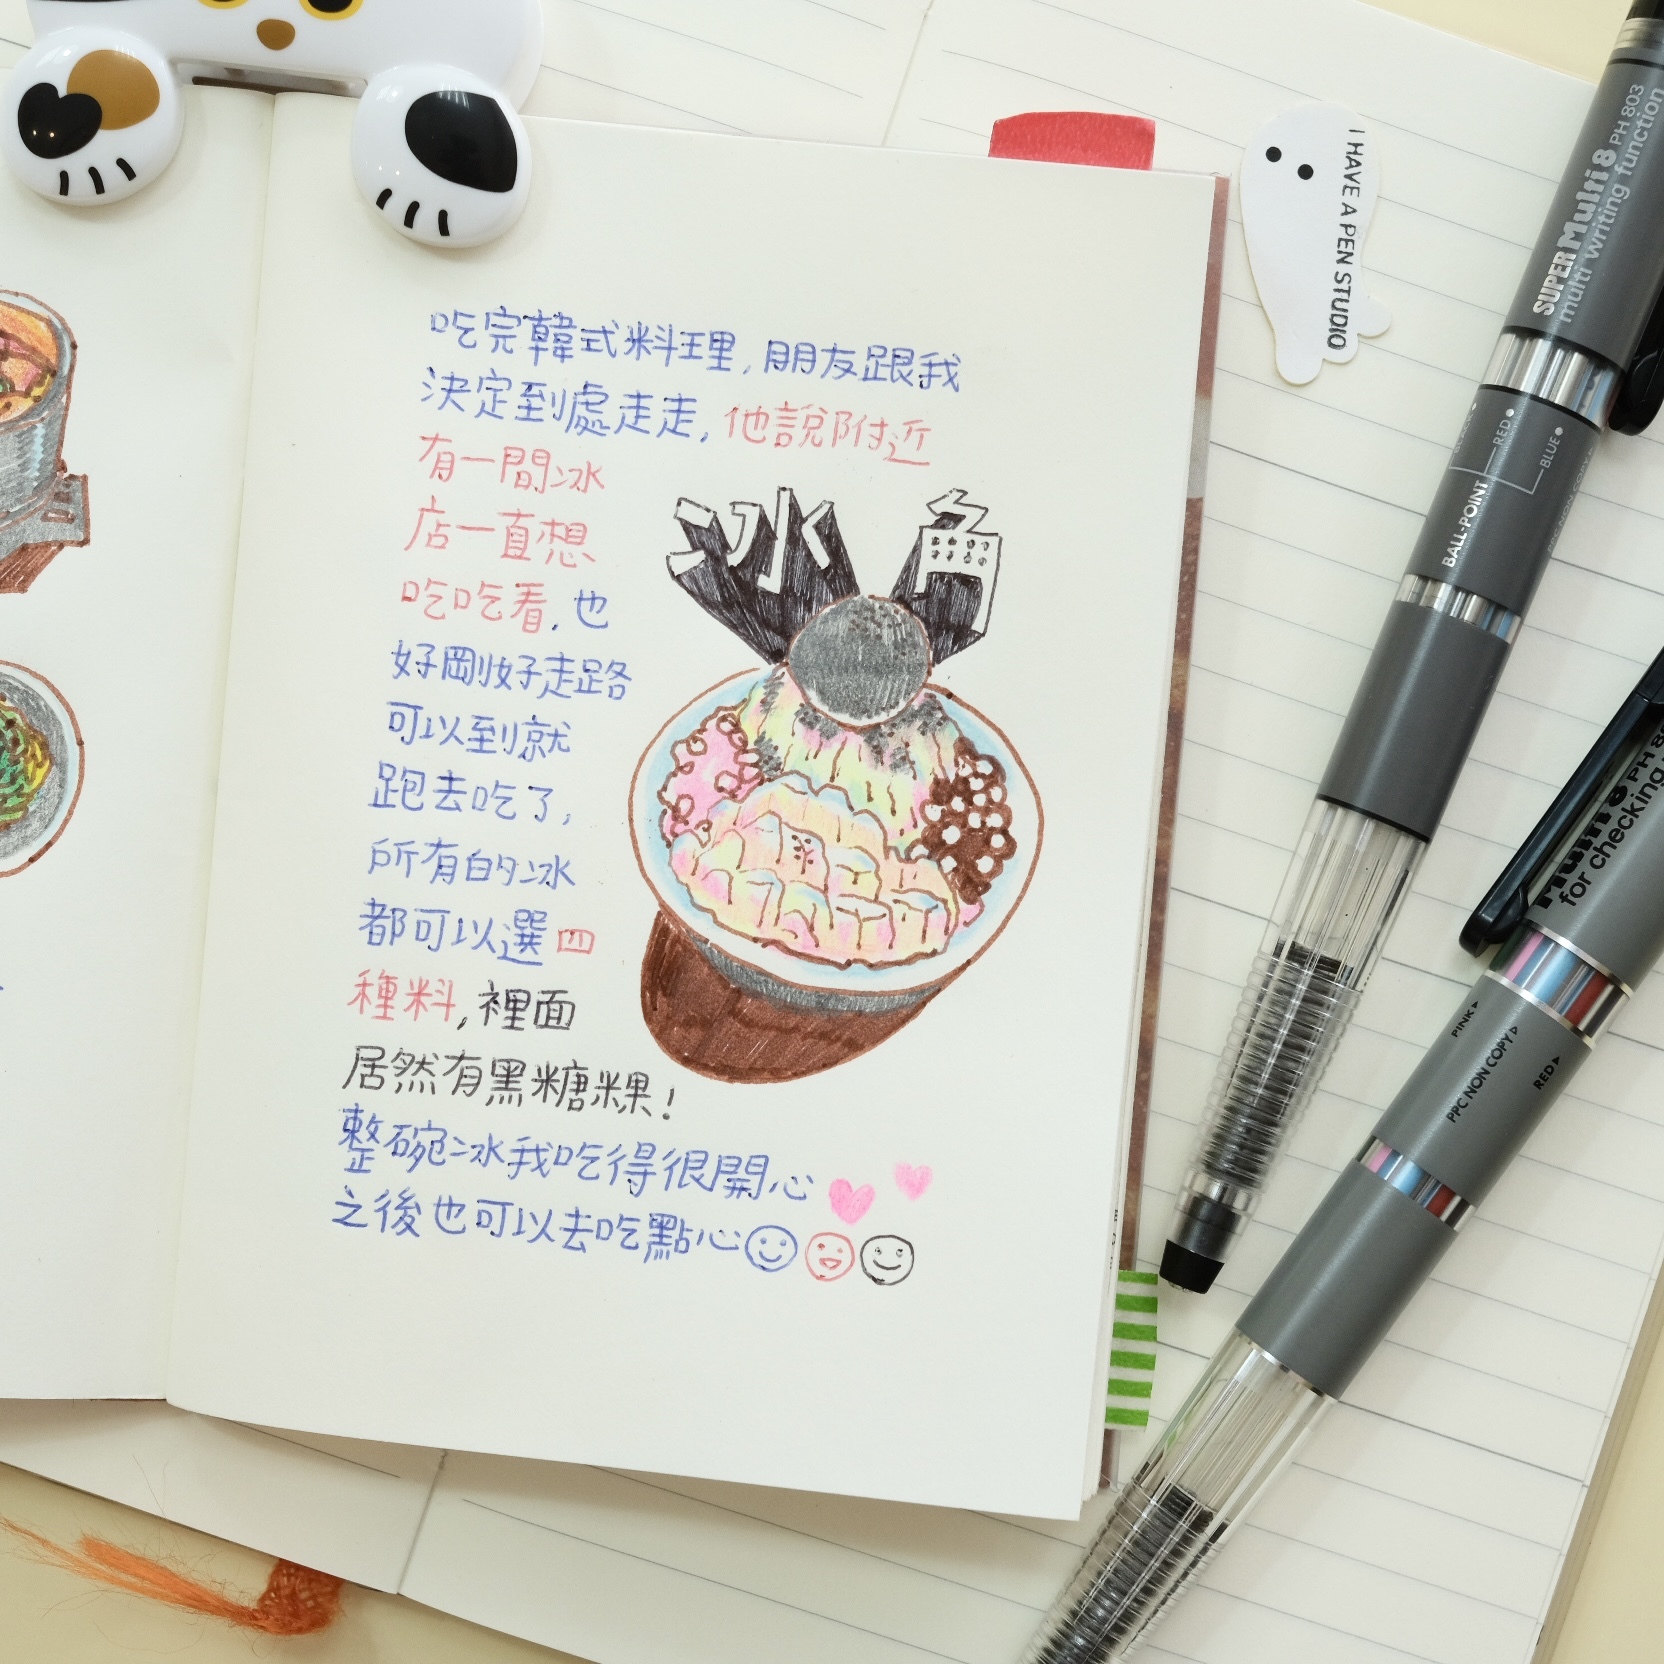 吃完韓式料理,朋友跟我
決定到處走走,他說附近
有一間冰
店一直想
吃吃看,也
好剛好走路
可以到就
跑去吃了,
所有的冰
都可以選四
種料,裡面
居然有黑糖粿!
整碗冰我吃得很開心
之後也可以去吃點心
冰 角
I HAVE A PEN STUDIO
SUPER Multi 8 PH 803
multi writing function
RED
BLUE
BALL-POINT
Multi 8 PH 80
for checking
PINK
PPC NON COPY
RED